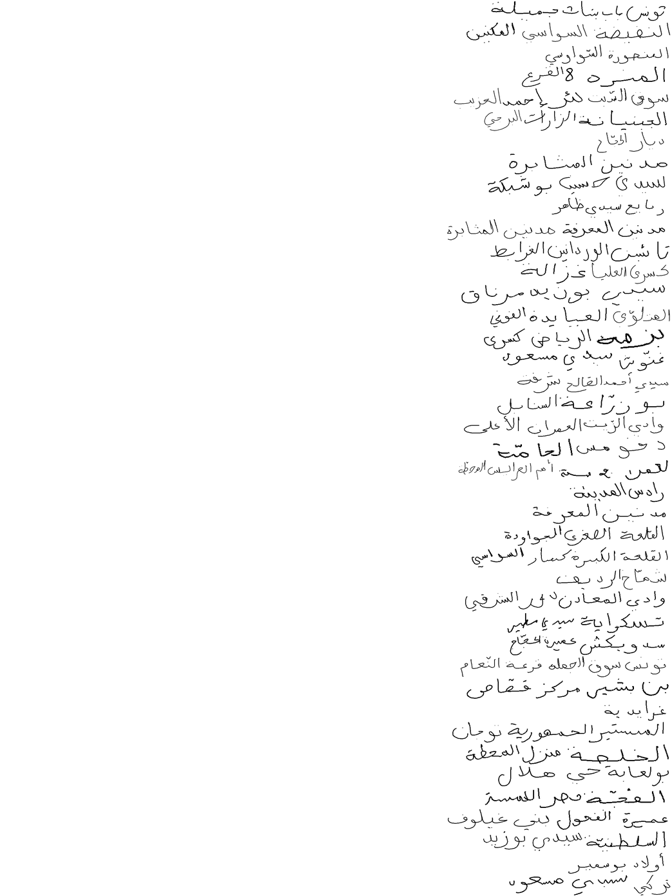 تونس باب بنات جميلة
النفيضة السواسي العكنين
المنصورة الشواربي
المنزه 8 الفرع
سوق الديب نشر أحمد العزيب
الجبنيانة الزارات البرجي
ديار الحجاج
مدنين المثابرة
لسيدي حسين بوشبكة
ربايع سيدي ظاهر
مدنين المعرفة مدنين المثابرة
تاشت الوردانين الغرابط
كسرى العليا غزالة
سيدي بوزيد مرناق
العلوي العبايدة الغوني
بنزمة الرياض كسرى
غنوش سيدي مسعود
سيدي أحمد الفالح شرفة
بوزراعة السنابل
وادي الزيت العمران الأعلى
دخومس الحامة
أم العرائس المحطة
رادس المدينة
مدنين المعرفة
القلعة الصغرى الجواودة
القلعة الكبيرة كسار السواسي
شماخ الرديف
وادي المعادن الشرقي
تسكراية سيدي مطير
سدويكش عميرة الحجاج
تونس سوق الجملة قرعة النعام
بن بشير مركز قفاص
غرايدية
المنستير الجمهورية نومان
الخليجة منزل المحطة
بولعابة حي هلال
الفجة قصر اللمسة
عميرة الفحول بني غيلوف
السلطنية سيدي بوزيد
أولاد بوسمير
سيدي مسعود